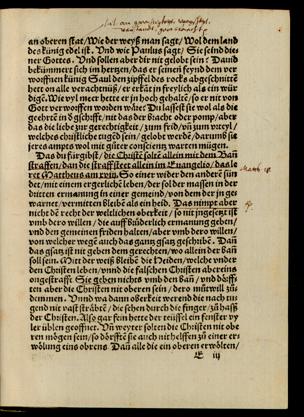 an oberen stat/ Wie der weyß man sagt/ Wol dem land
des künig edel ist. Vnd wie Paulus sagt/ Sie seind die
ner Gottes. Vnd sollen aber dir nit gelobt sein? Dauid
bekümmert sich im hertzen/ das er seinem feynd dem ver
worffnen künig Saul den zipffel des rocks abgeschnitt
hett on alle verachtung/ er erkant in freylich als ein wür
digen/ Wie vyl mer hette er jn hoch gehalten/ so er nit von
Gott verworffen worden wäre? Die lasset sie wol als die
geehrte in d'gschrifft/ nit das der bracht oder pomp/ aber
das die liebe zur gerechtigkeit/ zum frid/ vnd zum
welches christliche tugend sein/ gelobt werde/ darumb sie
jeres ampts wol mit guter conscientz warten mügen.
Das du fürgibst/ die Christen sollen allein mit dem Ban
straffen/ das die straff stett allein im Euangelio/ das le
ret Mattheus am xviij. So einer wider den andern sün
det/ mit einem ergerlichen leben/ der sol der massen in der
dritten ermanung in einer gemeind/ von dem der jn ge
warnet/ vermitten bleibe als ein heid. Das nimpt aber
nicht die recht der weltlichen oberkeit/ so nit jngesetzt ist
vmb dero willen/ die auff brüderlich ermanung geben/
vnd den gemeinen friden halten/ aber vmb dero willen/
von welcher wegen auch das gantz gsatz geschriben. Dañ
das gsatz ist nit geben dem gerechten/ wo allein der bann
soll sein. Mit der weiß bleiben die Heiden/ welche vnder
den Christen leben/ vnnd die falschen Christen aber eins
ongestrafft. Sie geben nichts vmb den bañ/ vnd dörff
ten aber die Christen nit oberen sein/ dero mütwill zů
demmen. Vnnd wa dann oberkeit werend die nach
gend nit vast sträbten/ die sehen durch die finger/ zů haß
der Christen. Also gar fein hette der teüffel ein fenster vy
ler üblen geöffnet. Vñ weyter solten die Christen nit obe
ren mögen sein/ so dörffte sie auch nit helffen zů einer er
wölung eins obren. Dañ alle die ein oberen erwölten/
E iij
Math. 18.